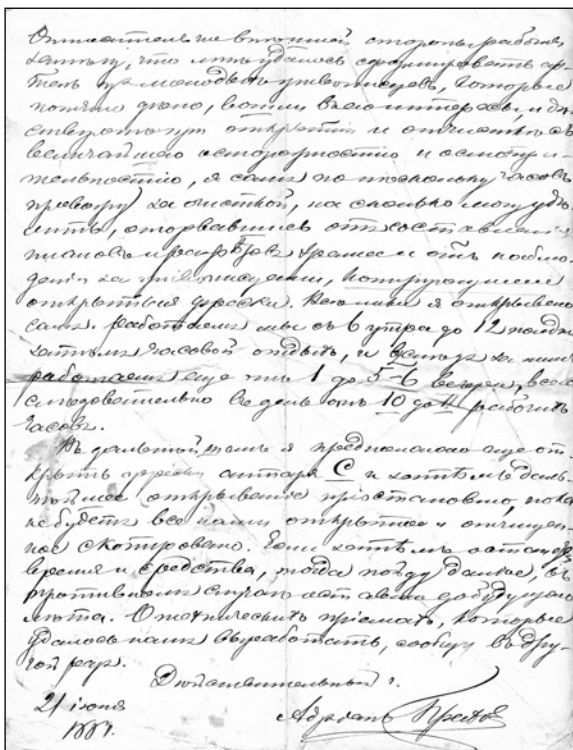 Относительно внешней стороны работъ
замѣчу, что мнѣ удалось сформировать ар-
тель изъ молодыхъ живописцевъ, которые
поняли дѣло, вошли въ его интересы, и дѣй-
ствуютъ при открытіи и отчисткѣ съ
величайшею осторожностію и осмотри-
тельностію, я самъ по нѣскольку часовъ
провожу за очисткой, на сколько могу удѣ-
лить, оторвавшись отъ составленія
плановъ и разрѣзовъ храма и отъ наблю-
денія за живописцами, копирующими
открытыя фрески. я открываю
самъ. Работаемъ мы съ 6 утра до 12 полдня
затѣмъ часовой отдыхъ, и вслѣдъ за нимъ
работаемъ еще отъ 1 до 5-6 вечера, всего
слѣдовательно въ день отъ 10 до 11 рабочихъ
часовъ.
Въ дальнѣйшемъ я предполагаю еще от-
крыть фрески алтаря С и затѣмъ даль-
нѣйшее открываніе пріостановлю, пока
не будетъ все нами открытое и отчищен-
ное скопировано. Если затѣмъ останутся
время и средства, тогда пойду далѣе, въ
противномъ случаѣ оставлю до будущаго
лѣта. О техническихъ пріемахъ, которые
удалось намъ выработать, сообщу въ дру-
гой разъ.
Дѣйствительный ч.
21 іюня
1884.
Адріанъ Праховъ